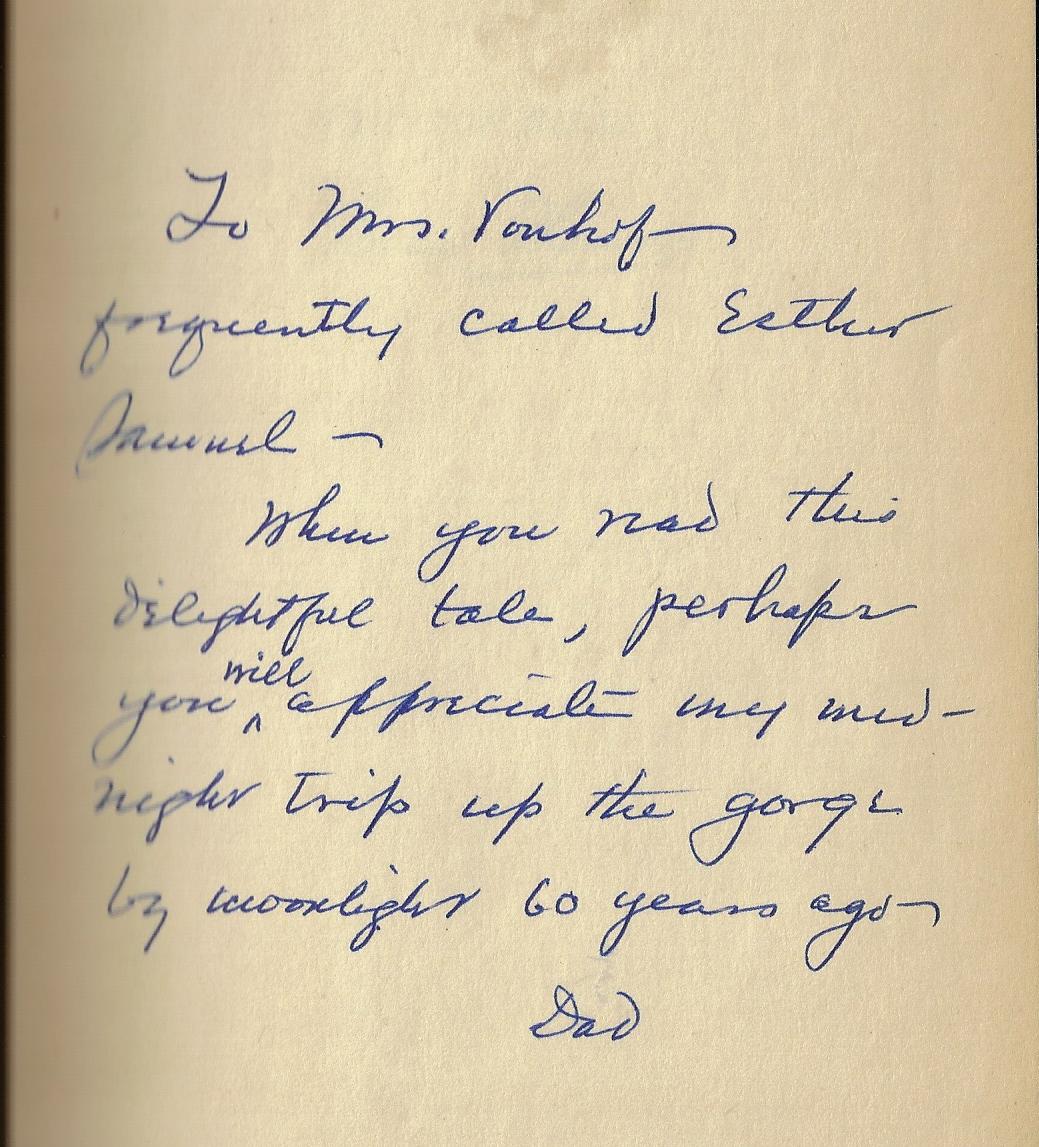 To Mrs. Vonhof—
frequently called Esther
Samuel —
When you read this
delightful tale, perhaps
you will appreciate my mid-
night trip up the gorge
by moonlight 60 years ago—
Dad